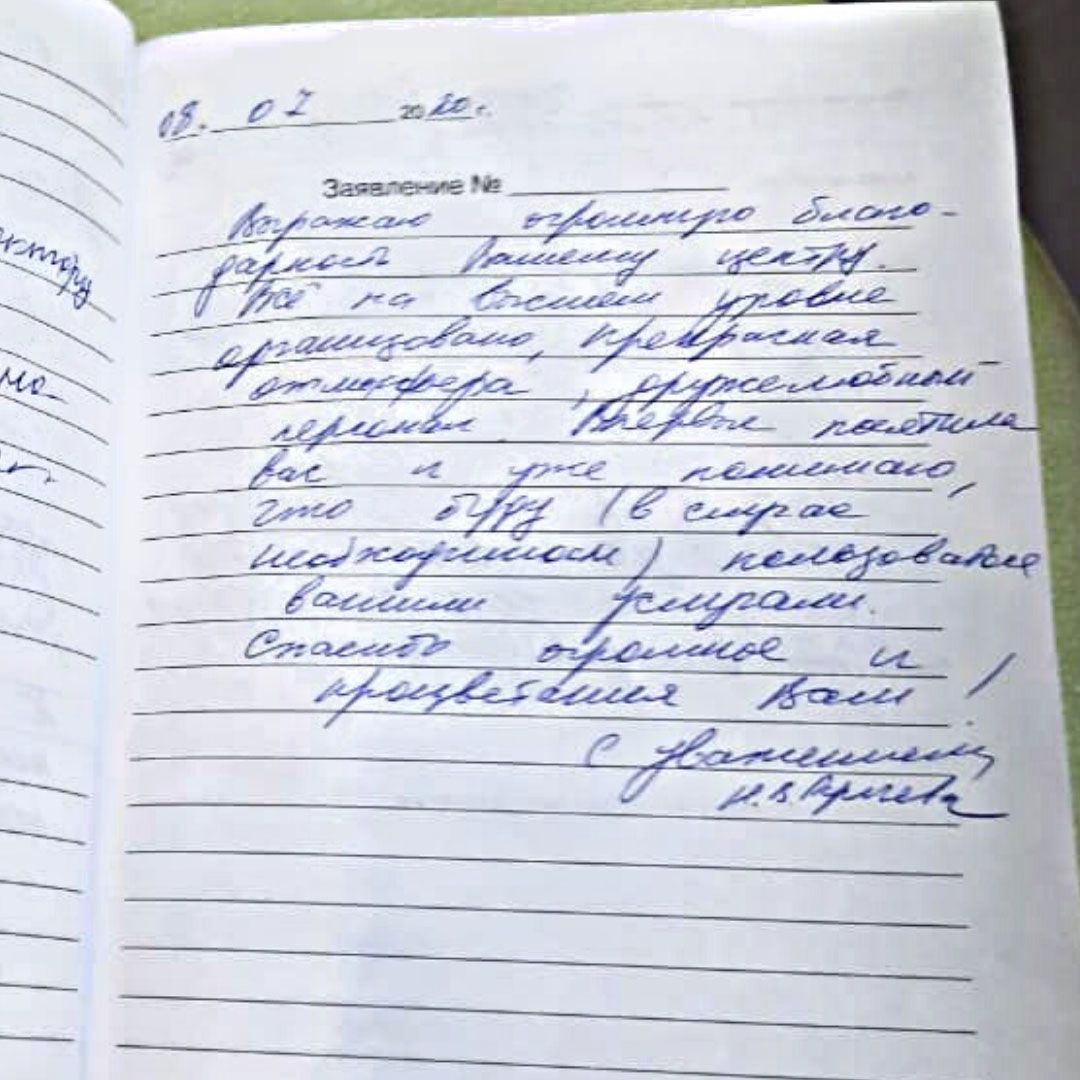 08. 07 2020 г.
Заявление №
Выражаю огромную благо-
дарность Вашему центру.
Всё на высшем уровне
организовано, прекрасная
атмосфера, дружелюбный
персонал. Впервые посетила
вас и уже понимаю,
что буду (в случае
необходимости) пользоваться
вашими услугами.
Спасибо огромное и
процветания Вам!
С уважением,
Н.В.